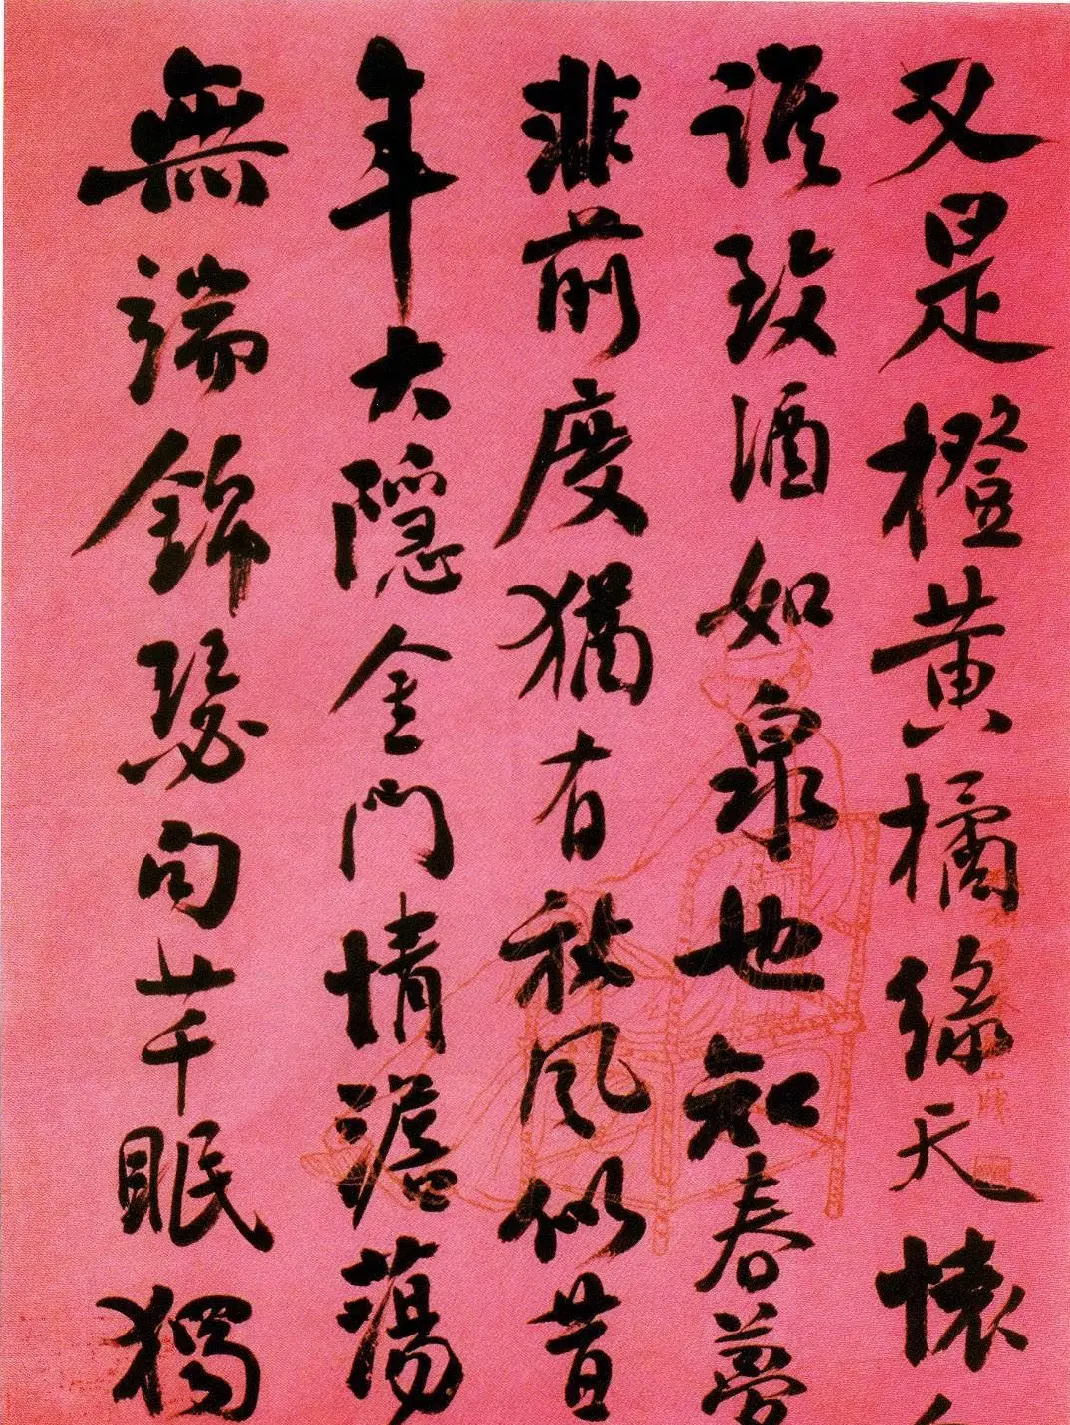 又是橙黃橘綠天懷
誰致酒如泉也知春夢
非前度猶有秋風似昔
年大隱金門情澹蕩
無端錦瑟句芊眠獨